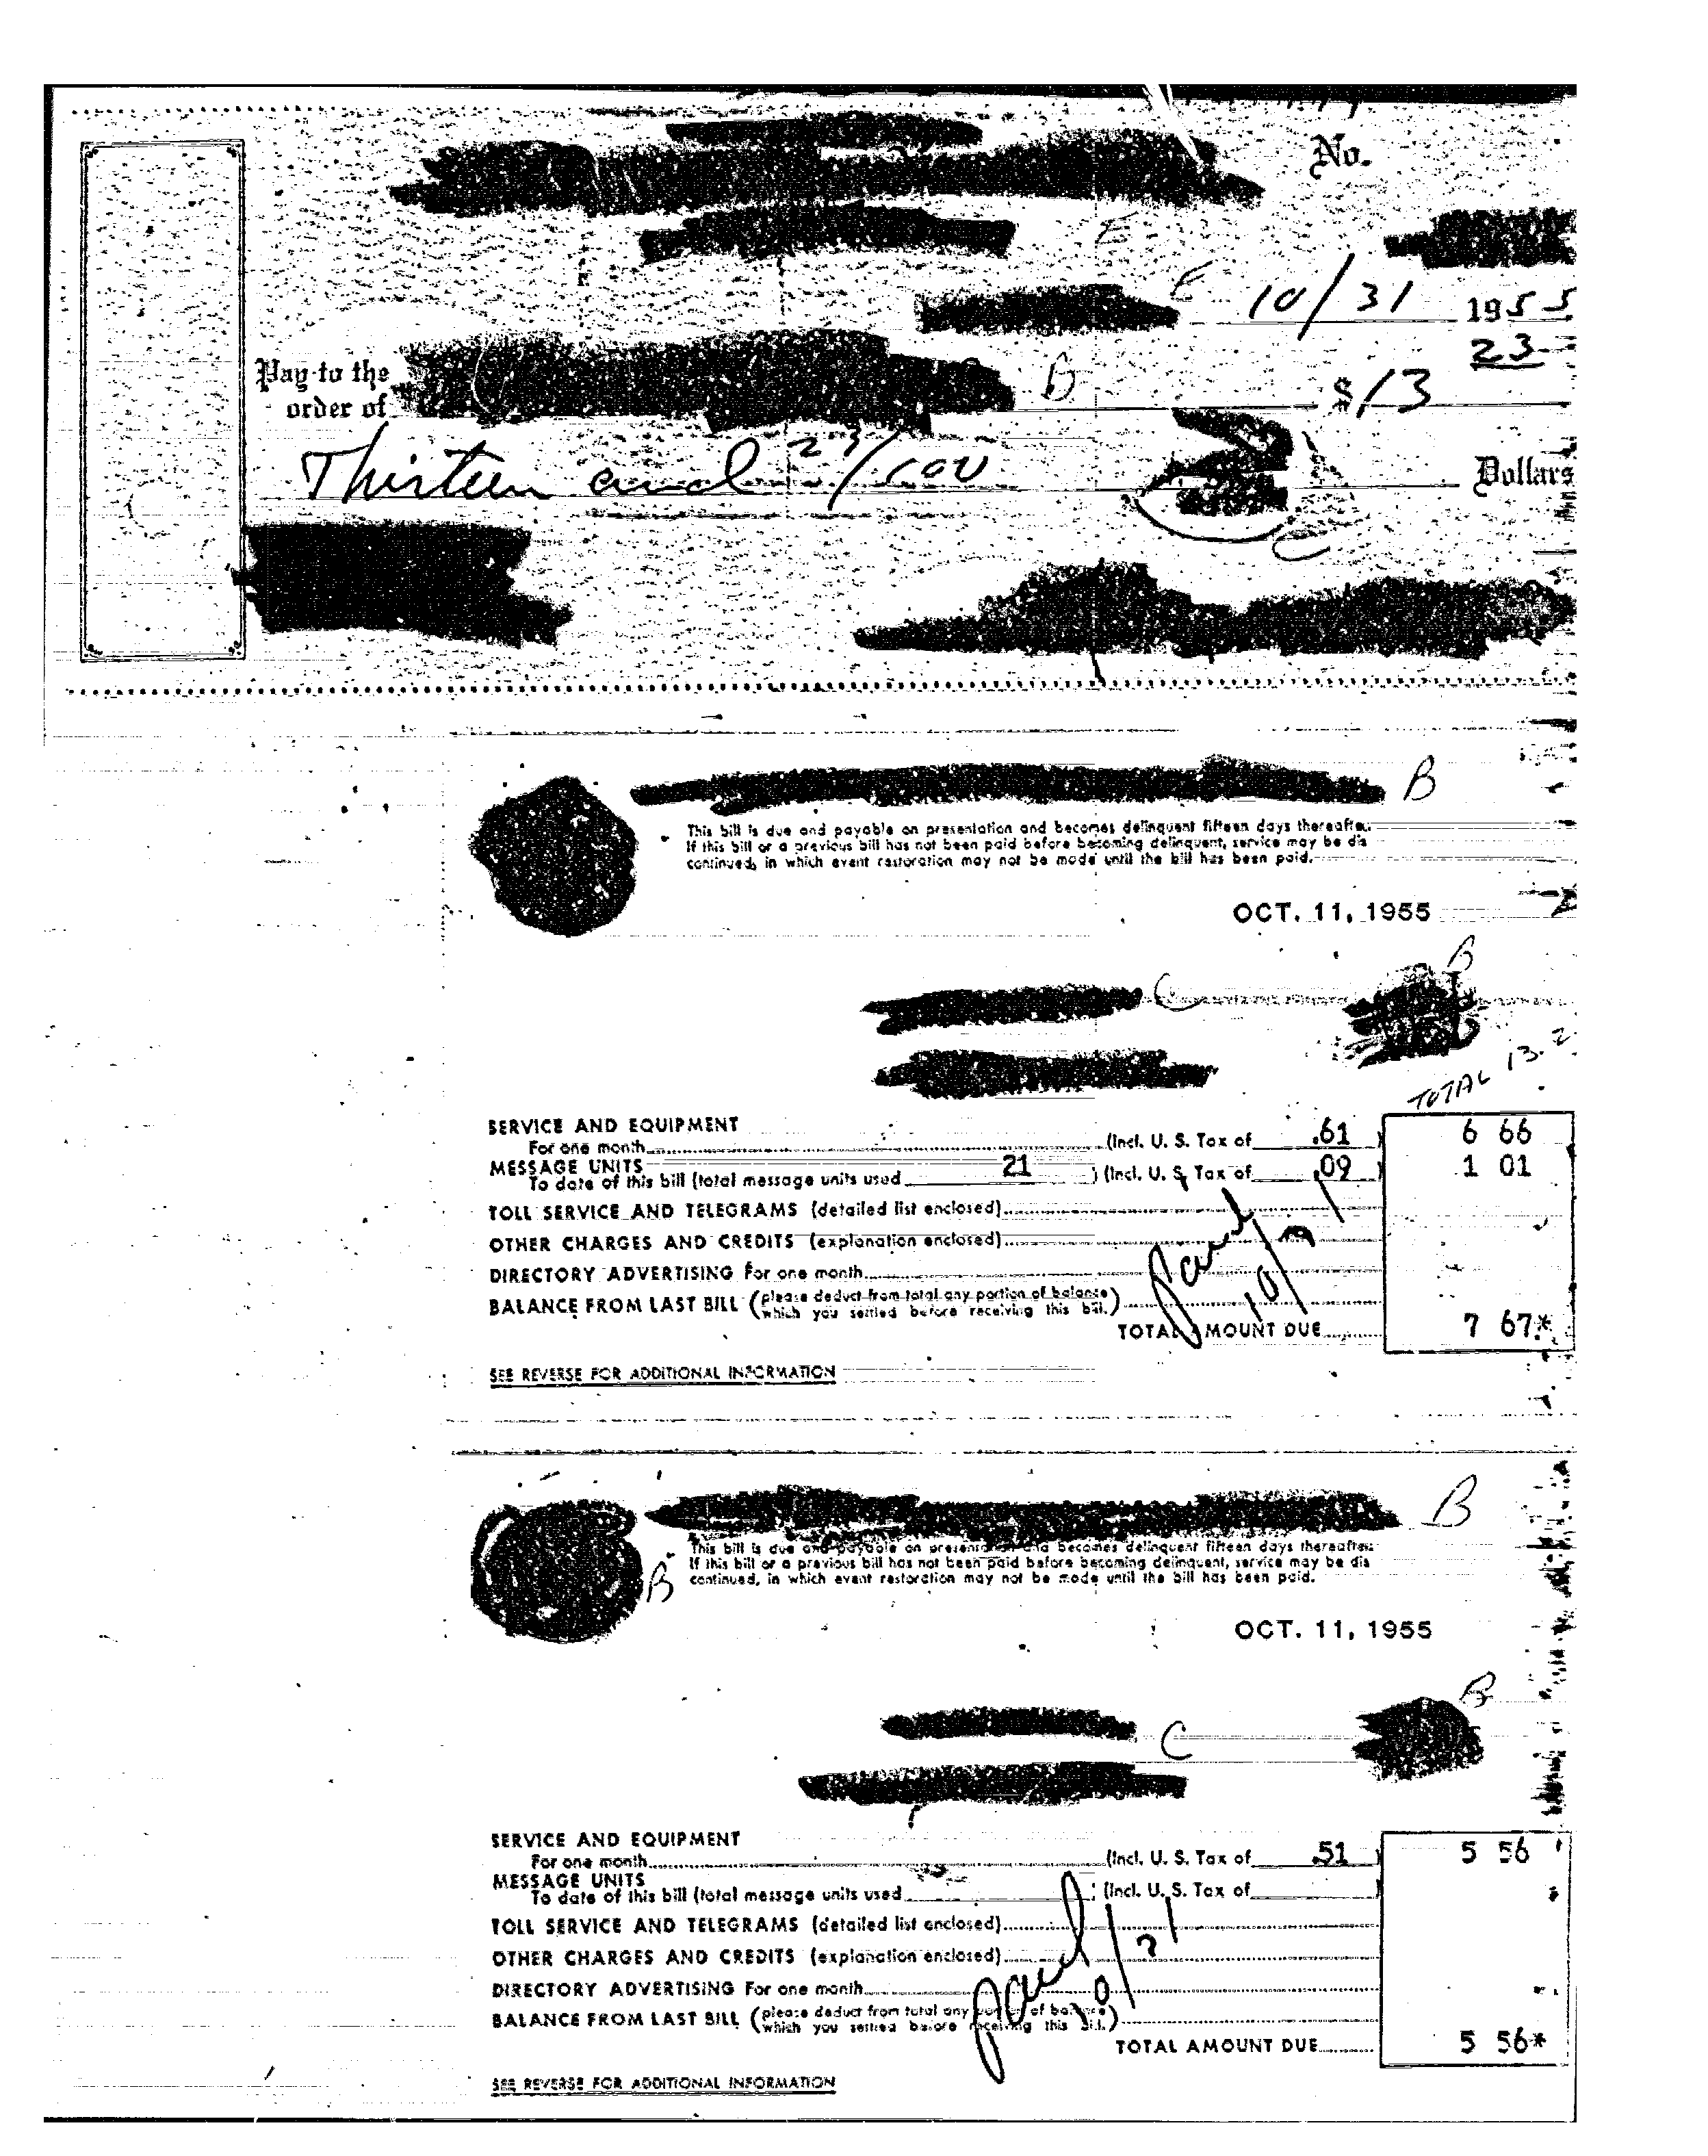 No.
E
E 10/31 1955
Pay to the order of B $13 23
Thirteen and 23/100 Dollars
C
B
This bill is due and payable on presentation and becomes delinquent fifteen days thereafter.
If this bill or a previous bill has not been paid before becoming delinquent, service may be dis
continued, in which event restoration may not be made until the bill has been paid.
OCT. 11, 1955
B
C
TOTAL 13.2
SERVICE AND EQUIPMENT
For one month (Incl. U. S. Tax of .61 ) 6 66
MESSAGE UNITS
To date of this bill (total message units used 21 ) (Incl. U. S. Tax of .09 ) 1 01
TOLL SERVICE AND TELEGRAMS (detailed list enclosed)
OTHER CHARGES AND CREDITS (explanation enclosed)
DIRECTORY ADVERTISING For one month
BALANCE FROM LAST BILL (please deduct from total any portion of balance
which you settled before receiving this bill.)
TOTAL AMOUNT DUE 7 67*
SEE REVERSE FOR ADDITIONAL INFORMATION
B
This bill is due and payable on presentation and becomes delinquent fifteen days thereafter.
If this bill or a previous bill has not been paid before becoming delinquent, service may be dis
continued, in which event restoration may not be made until the bill has been paid.
B
OCT. 11, 1955
B
C
SERVICE AND EQUIPMENT
For one month (Incl. U. S. Tax of .51 ) 5 56
MESSAGE UNITS
To date of this bill (total message units used ) (Incl. U. S. Tax of )
TOLL SERVICE AND TELEGRAMS (detailed list enclosed)
OTHER CHARGES AND CREDITS (explanation enclosed)
DIRECTORY ADVERTISING For one month
BALANCE FROM LAST BILL (please deduct from total any portion of balance
which you settled before receiving this bill.)
TOTAL AMOUNT DUE 5 56*
SEE REVERSE FOR ADDITIONAL INFORMATION